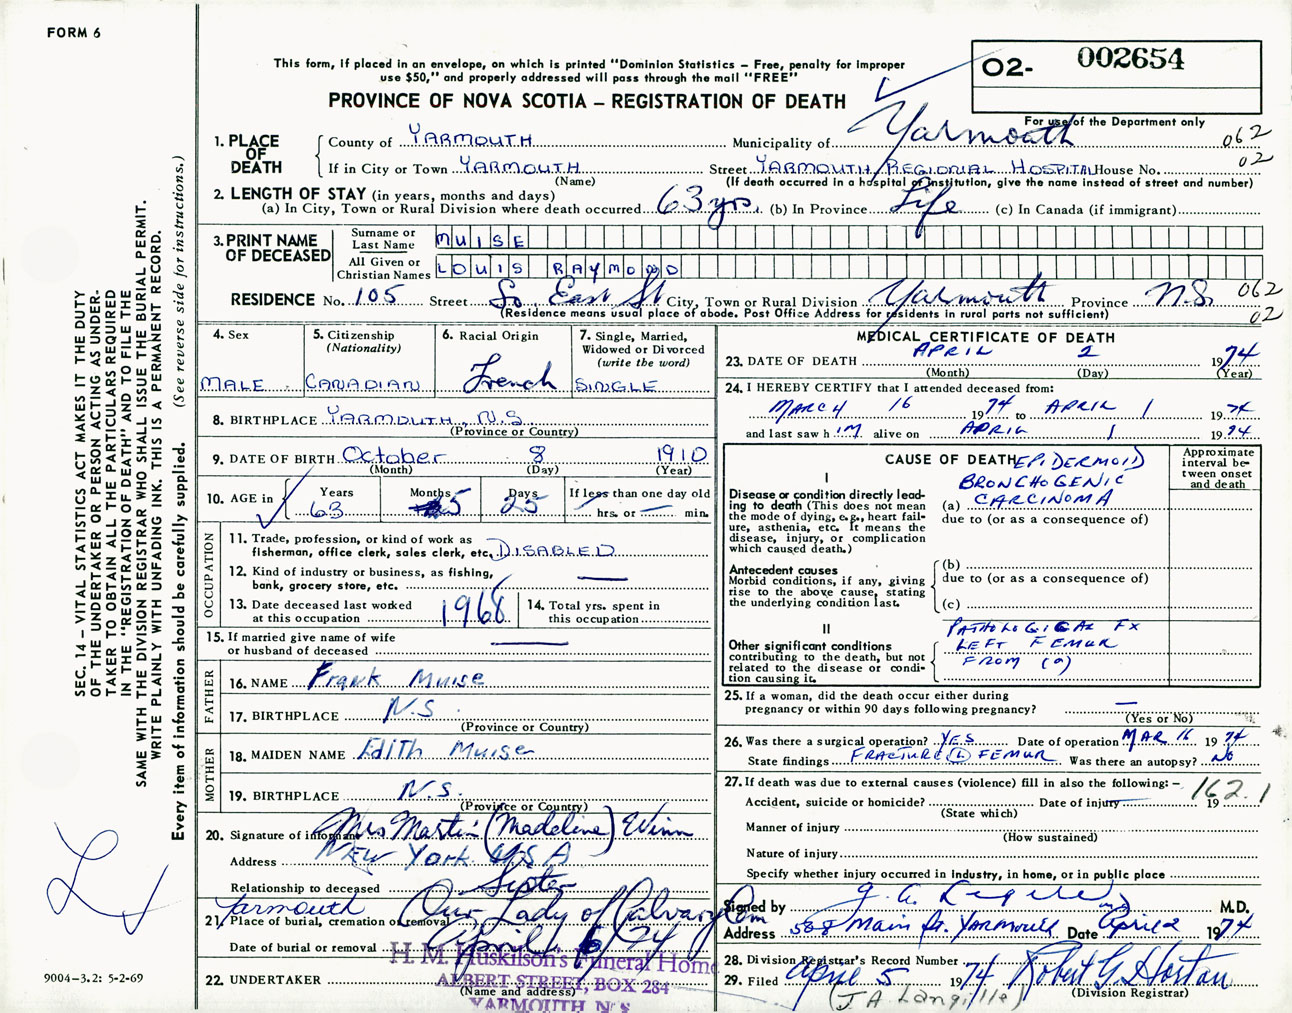 FORM 6
This form, if placed in an envelope, on which is printed "Dominion Statistics – Free, penalty for improper
use $50," and properly addressed will pass through the mail "FREE"
PROVINCE OF NOVA SCOTIA – REGISTRATION OF DEATH
O2- 002654
For use of the Department only
1. PLACE OF DEATH
County of YARMOUTH Municipality of Yarmouth 062
If in City or Town YARMOUTH Street YARMOUTH REGIONAL HOSPITAL House No. 02
(Name) (If death occurred in a hospital or institution, give the name instead of street and number)
2. LENGTH OF STAY (in years, months and days)
(a) In City, Town or Rural Division where death occurred 63 yrs. (b) In Province Life (c) In Canada (if immigrant)
3. PRINT NAME OF DECEASED
Surname or Last Name MUISE
All Given or Christian Names LOUIS RAYMOND
RESIDENCE No. 105 Street So. East St City, Town or Rural Division Yarmouth Province N.S. 062
02
(Residence means usual place of abode. Post Office Address for residents in rural parts not sufficient)
4. Sex
MALE
5. Citizenship
(Nationality)
CANADIAN
6. Racial Origin
French
7. Single, Married,
Widowed or Divorced
(write the word)
SINGLE
8. BIRTHPLACE YARMOUTH, N.S
(Province or Country)
9. DATE OF BIRTH October 8 1910
(Month) (Day) (Year)
10. AGE in
Years 63
Months 5
Days 25
If less than one day old
hrs. or min.
OCCUPATION
11. Trade, profession, or kind of work as
fisherman, office clerk, sales clerk, etc. DISABLED
12. Kind of industry or business, as fishing,
bank, grocery store, etc. —
13. Date deceased last worked
at this occupation 1968
14. Total yrs. spent in
this occupation
15. If married give name of wife
or husband of deceased —
FATHER
16. NAME Frank Muise
17. BIRTHPLACE N.S
(Province or Country)
MOTHER
18. MAIDEN NAME Edith Muise
19. BIRTHPLACE N.S.
(Province or Country)
20. Signature of informant Mrs Martin (Madeline) Winn
Address New York U S A
Relationship to deceased Sister
Yarmouth
21. Place of burial, cremation or removal Our Lady of Calvary Cem
Date of burial or removal April 6/74
22. UNDERTAKER
H. M. Huskilson's Funeral Home
ALBERT STREET, BOX 284
(Name and address)
YARMOUTH, N. S.
MEDICAL CERTIFICATE OF DEATH
23. DATE OF DEATH APRIL 2 1974
(Month) (Day) (Year)
24. I HEREBY CERTIFY that I attended deceased from:
MARCH 16 1974 to APRIL 1 1974
and last saw him alive on APRIL 1 1974
CAUSE OF DEATH
Approximate interval between onset and death
I
Disease or condition directly leading
to death (This does not mean
the mode of dying, e.g., heart failure,
asthenia, etc. It means the
disease, injury, or complication
which caused death.)
EPIDERMOID
BRONCHOGENIC
(a) CARCINOMA
due to (or as a consequence of)
Antecedent causes
Morbid conditions, if any, giving
rise to the above cause, stating
the underlying condition last.
(b)
due to (or as a consequence of)
(c)
II
Other significant conditions
contributing to the death, but not
related to the disease or condition
causing it.
PATHOLOGICAL FX
LEFT FEMUR
FROM (a)
25. If a woman, did the death occur either during
pregnancy or within 90 days following pregnancy? —
(Yes or No)
26. Was there a surgical operation? YES Date of operation MAR 16 1974
State findings FRACTURE (L) FEMUR Was there an autopsy? NO
27. If death was due to external causes (violence) fill in also the following: –
162.1
Accident, suicide or homicide? Date of injury — 19
(State which)
Manner of injury
(How sustained)
Nature of injury
Specify whether injury occurred in industry, in home, or in public place
Signed by M.D.
Address 588 Main St. YARMOUTH Date April 2 1974
28. Division Registrar's Record Number
29. Filed April 5 1974 Robert G. Horton
(Division Registrar)
(J A Langille)
SEC. 14 – VITAL STATISTICS ACT MAKES IT THE DUTY
OF THE UNDERTAKER OR PERSON ACTING AS UNDER-
TAKER TO OBTAIN ALL THE PARTICULARS REQUIRED
IN THE "REGISTRATION OF DEATH" AND TO FILE THE
SAME WITH THE DIVISION REGISTRAR WHO SHALL ISSUE THE BURIAL PERMIT.
WRITE PLAINLY WITH UNFADING INK. THIS IS A PERMANENT RECORD.
Every item of information should be carefully supplied. (See reverse side for instructions.)
9004–3.2: 5-2-69